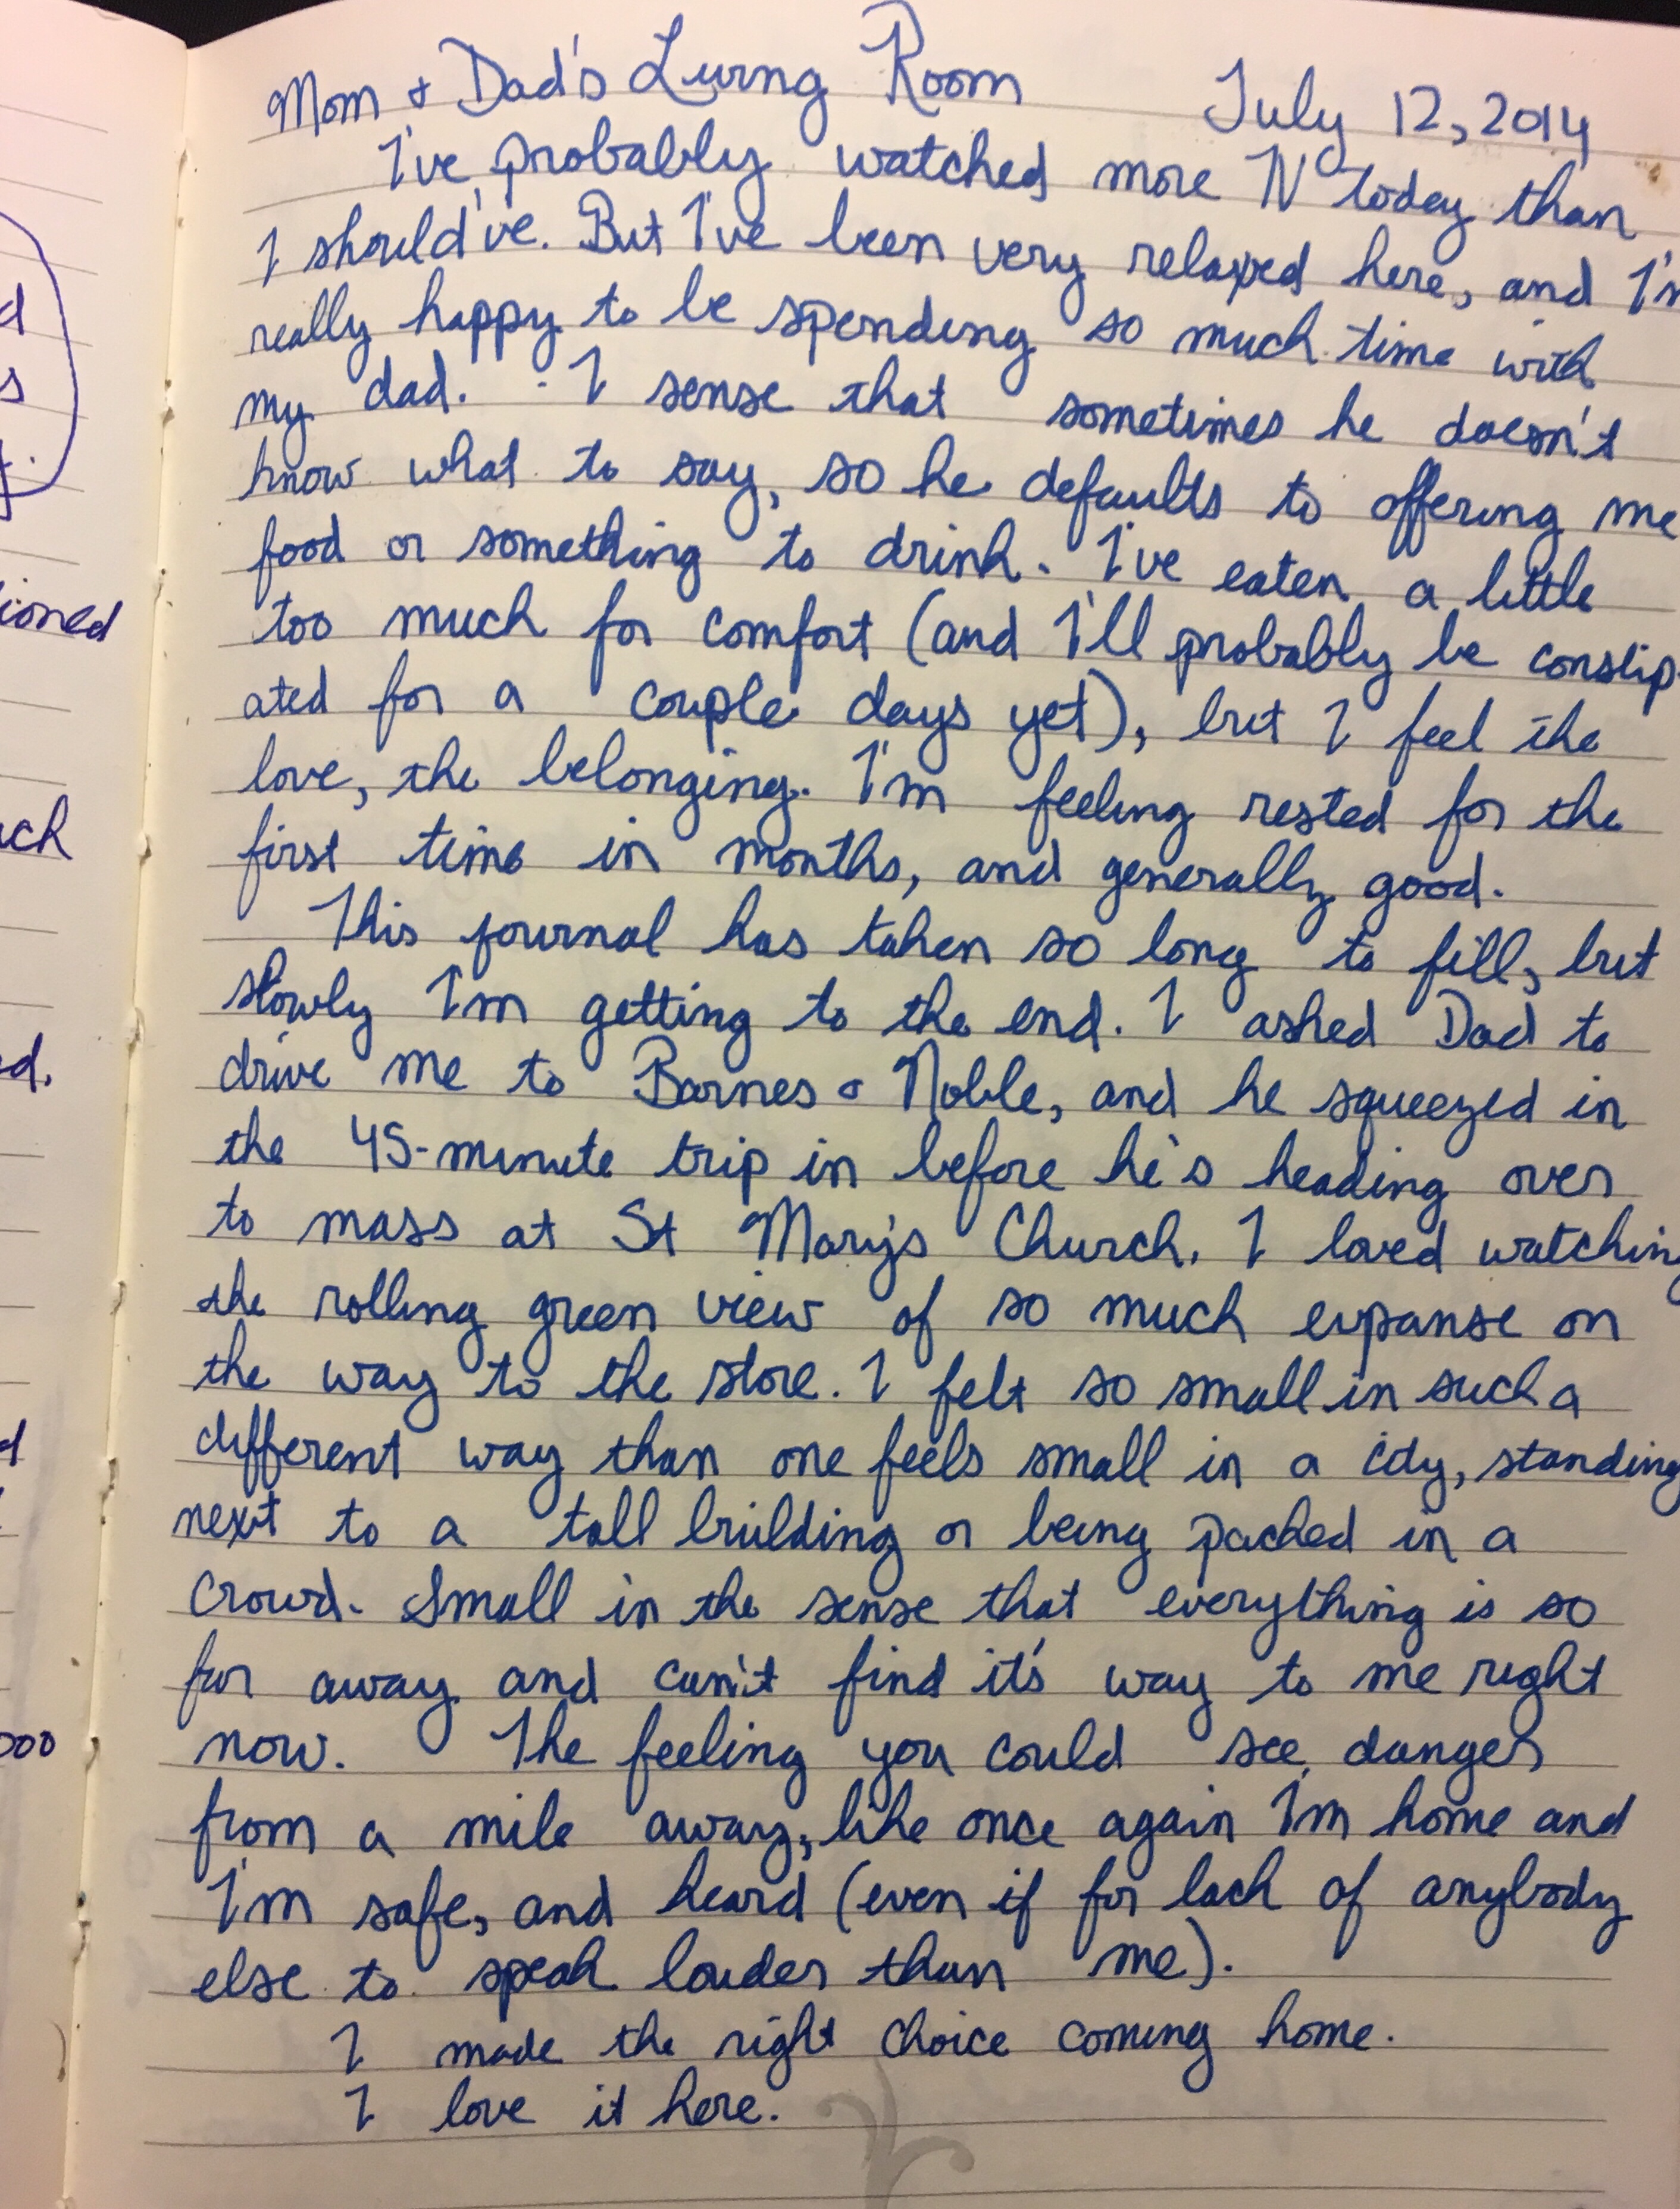 Mom + Dad's Living Room July 12, 2014
I've probably watched more TV today than
I should've. But I've been very relaxed here, and I'm
really happy to be spending so much time with
my dad. I sense that sometimes he doesn't
know what to say, so he defaults to offering me
food or something to drink. I've eaten a little
too much for comfort (and I'll probably be constip-
ated for a couple days yet), but I feel the
love, the belonging. I'm feeling rested for the
first time in months, and generally good.
This journal has taken so long to fill, but
slowly I'm getting to the end. I asked Dad to
drive me to Barnes & Noble, and he squeezed in
the 45-minute trip in before he's heading over
to mass at St Mary's Church. I loved watching
the rolling green view of so much expanse on
the way to the store. I felt so small in such a
different way than one feels small in a city, standing
next to a tall building or being packed in a
crowd. Small in the sense that everything is so
far away and can't find it's way to me right
now. The feeling you could see danger
from a mile away, like once again I'm home and
I'm safe, and heard (even if for lack of anybody
else to speak louder than me).
I made the right choice coming home.
I love it here.